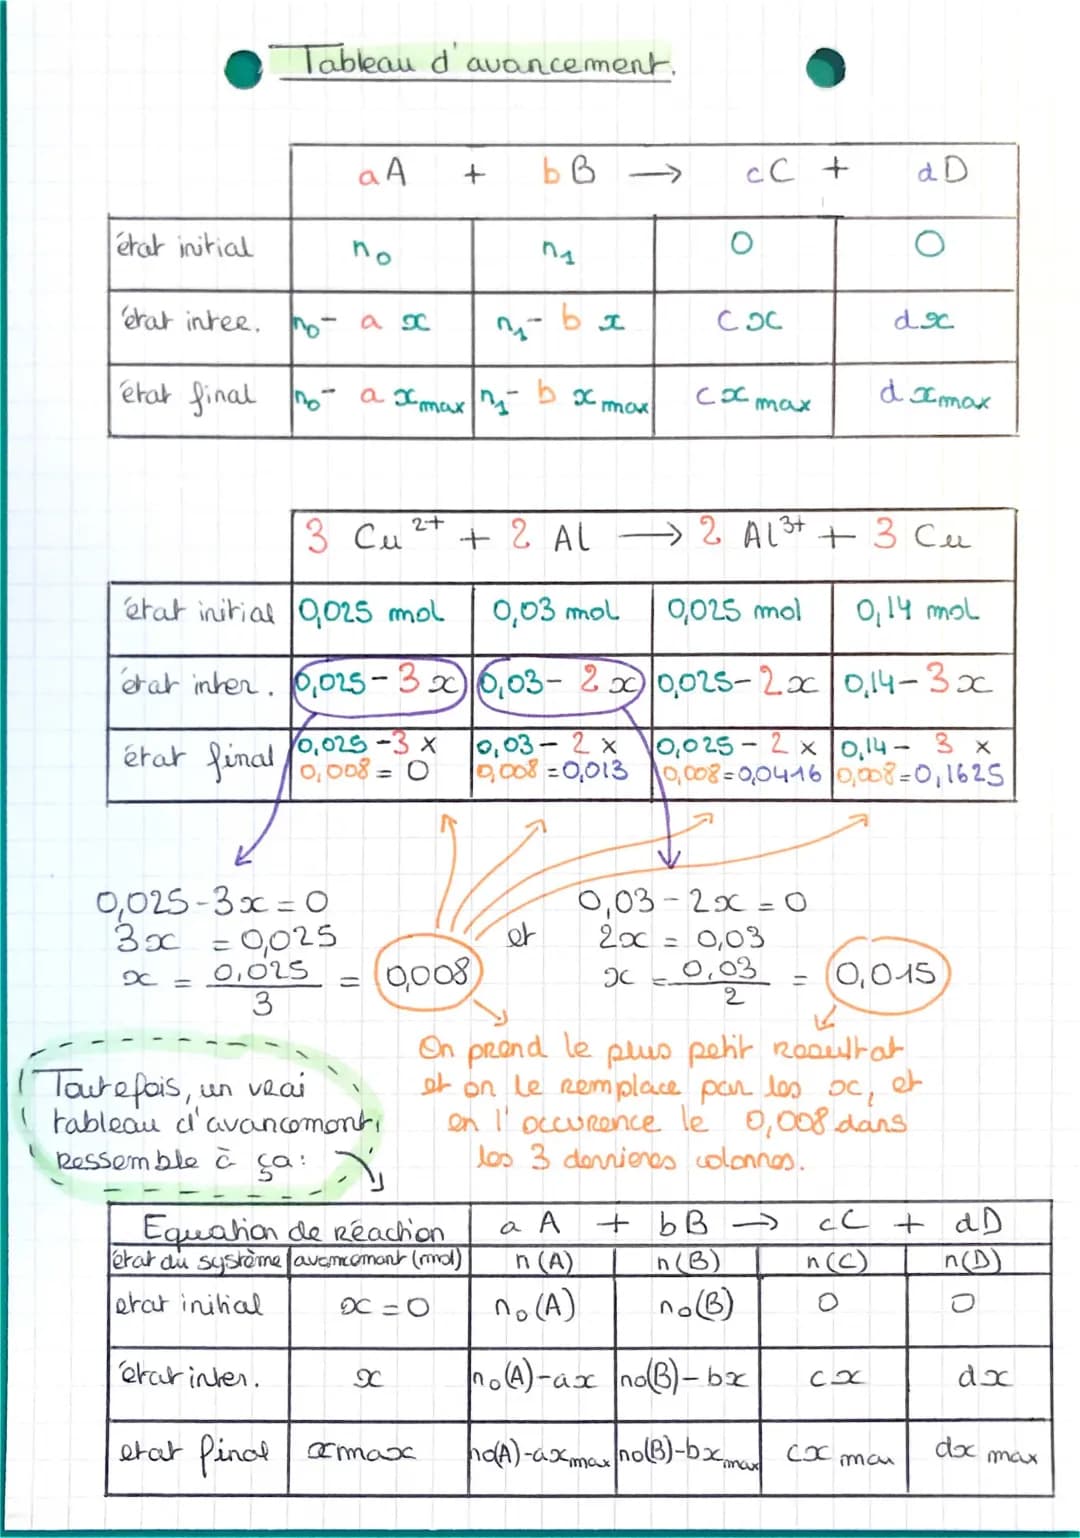 Tableau d'avancement.
aA + bB → cC + dD
état initial n₀ n₁ 0 0
état inter. n₀- a x n₁- b x cx dx
état final n₀- a xmax n₁- b xmax cxmax dxmax
3 Cu²⁺ + 2 Al → 2 Al³⁺ + 3 Cu
état initial 0,025 mol 0,03 mol 0,025 mol 0,14 mol
état inter. 0,025-3x 0,03-2x 0,025-2x 0,14-3x
état final 0,025-3× 0,008=0 0,03-2× 0,008=0,013 0,025-2× 0,008=0,0416 0,14-3× 0,008=0,1625
0,025-3x=0
3x = 0,025
x = 0,025/3 = 0,008
et
0,03-2x=0
2x = 0,03
x = 0,03/2 = 0,015
On prend le plus petit résultat
et on le remplace par les x, et
en l'occurence le 0,008 dans
les 3 dernières colonnes.
Toutefois, un vrai
tableau d'avancement,
ressemble à ça:
Equation de réaction aA + bB → cC + dD
état du système avancement (mol) n(A) n(B) n(C) n(D)
etat initial x=0 n₀(A) n₀(B) 0 0
état inter. x n₀(A)-ax n₀(B)-bx cx dx
etat final xmax n₀(A)-axmax n₀(B)-bxmax cxmax dxmax